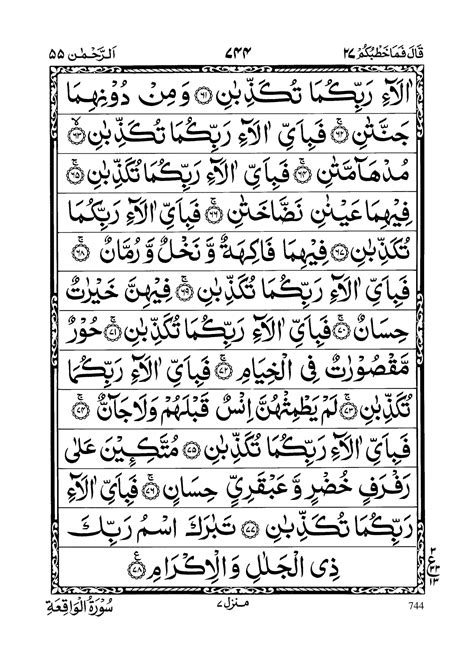 قَالَ فَمَا خَطْبُكُمْ ٢٧ ٧٤٤ اَلرَّحْمٰن ٥٥
اٰلَآءِ رَبِّكُمَا تُكَذِّبٰنِ ﴿٦١﴾ وَ مِنْ دُوْنِهِمَا
جَنَّتٰنِ ﴿٦٢﴾ فَبِاَيِّ اٰلَآءِ رَبِّكُمَا تُكَذِّبٰنِ ﴿٦٣﴾
مُدْهَآمَّتٰنِ ﴿٦٤﴾ فَبِاَيِّ اٰلَآءِ رَبِّكُمَا تُكَذِّبٰنِ ﴿٦٥﴾
فِيْهِمَا عَيْنٰنِ نَضَّاخَتٰنِ ﴿٦٦﴾ فَبِاَيِّ اٰلَآءِ رَبِّكُمَا
تُكَذِّبٰنِ ﴿٦٧﴾ فِيْهِمَا فَاكِهَةٌ وَّ نَخْلٌ وَّ رُمَّانٌ ﴿٦٨﴾
فَبِاَيِّ اٰلَآءِ رَبِّكُمَا تُكَذِّبٰنِ ﴿٦٩﴾ فِيْهِنَّ خَيْرٰتٌ
حِسَانٌ ﴿٧٠﴾ فَبِاَيِّ اٰلَآءِ رَبِّكُمَا تُكَذِّبٰنِ ﴿٧١﴾ حُوْرٌ
مَّقْصُوْرٰتٌ فِي الْخِيَامِ ﴿٧٢﴾ فَبِاَيِّ اٰلَآءِ رَبِّكُمَا
تُكَذِّبٰنِ ﴿٧٣﴾ لَمْ يَطْمِثْهُنَّ اِنْسٌ قَبْلَهُمْ وَلَا جَآنٌّ ﴿٧٤﴾
فَبِاَيِّ اٰلَآءِ رَبِّكُمَا تُكَذِّبٰنِ ﴿٧٥﴾ مُتَّكِـِٕيْنَ عَلٰى
رَفْرَفٍ خُضْرٍ وَّ عَبْقَرِيٍّ حِسَانٍ ﴿٧٦﴾ فَبِاَيِّ اٰلَآءِ
رَبِّكُمَا تُكَذِّبٰنِ ﴿٧٧﴾ تَبٰرَكَ اسْمُ رَبِّكَ
ذِي الْجَلٰلِ وَ الْاِكْرَامِ ﴿٧٨﴾
ع
744 منزل ٧ سُوْرَةُ الْوَاقِعَةِ